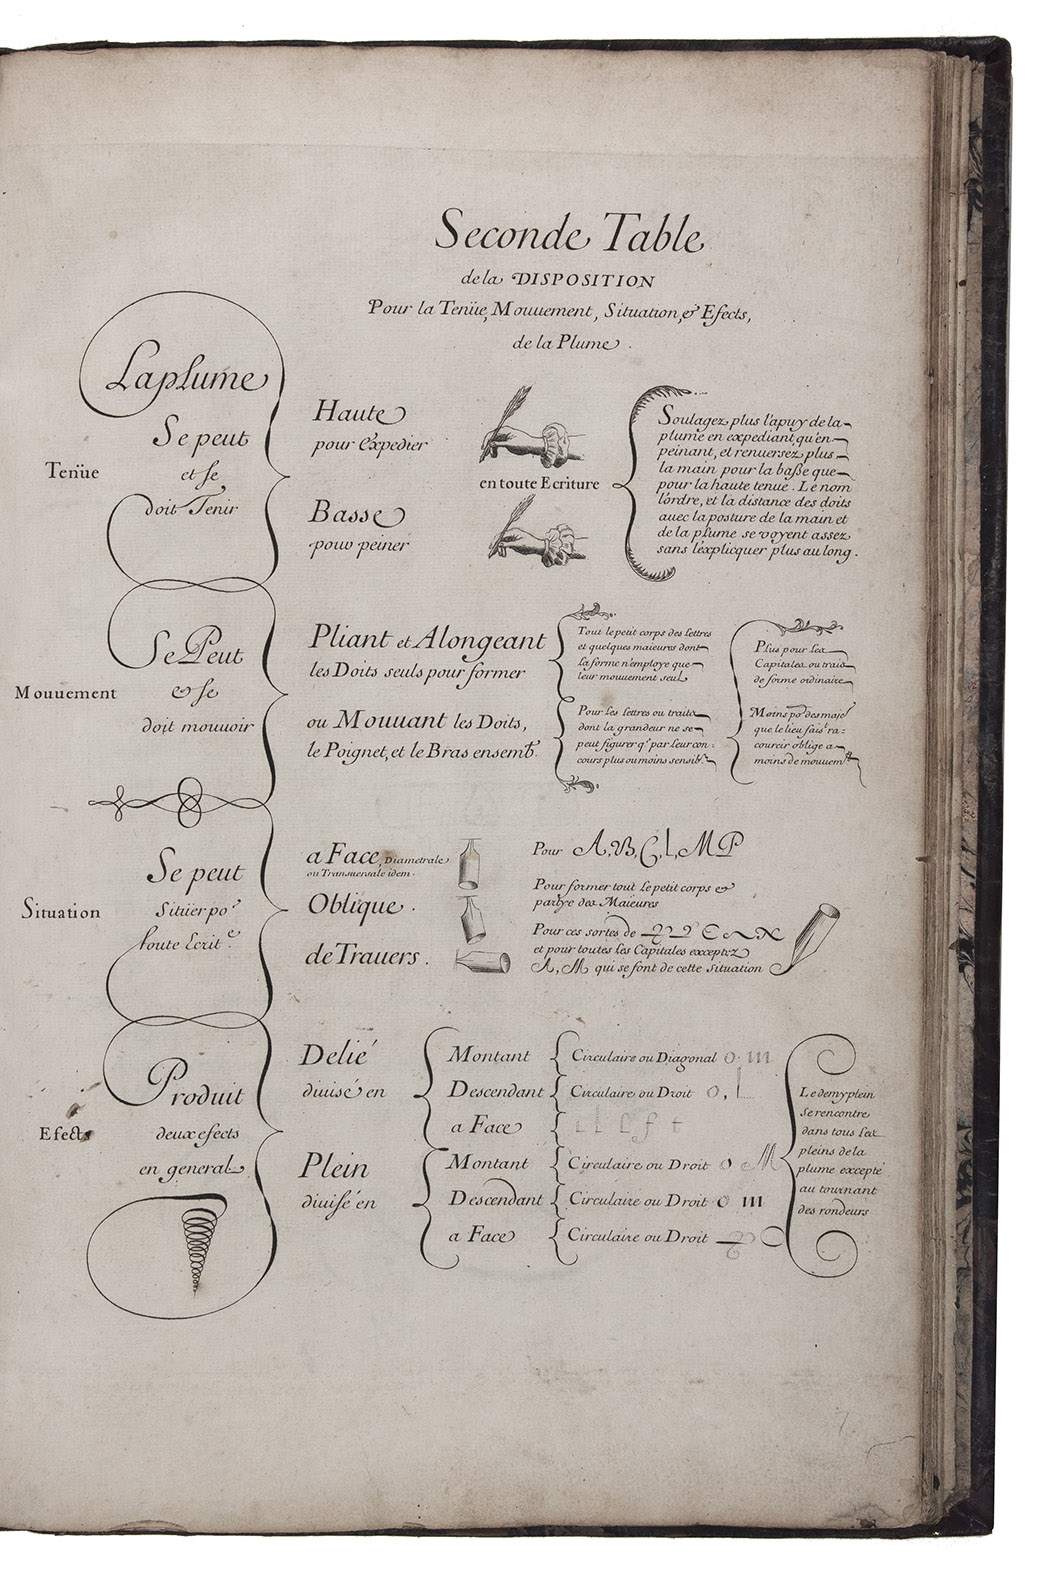 Seconde Table
de la DISPOSITION
Pour la Tenüe, Mouuement, Situation, & Efects,
de la Plume.
Tenüe
La plume
Se peut
et se
doit Tenir
Haute
pour expedier
Basse
pour peiner
en toute Ecriture
Soulagez plus l'apuy de la
plume en expediant, qu'en
peinant, et renuersez plus
la main pour la basse que
pour la haute tenue. Le nom
l'ordre, et la distance des doits
auec la posture de la main et
de la plume se voyent assez
sans l'explicquer plus au long.
Mouuement
Se Peut
& se
doit mouuoir
Pliant et Alongeant
les Doits seuls pour former
Tout le petit corps des lettres
et quelques maieures dont
la forme n'employe que
leur mouuement seul
ou Mouuant les Doits,
le Poignet, et le Bras ensemb.
Pour les lettres ou traits
dont la grandeur ne se
peut figurer q' par leur con:
cours plus ou moins sensib.
Plus pour les
Capitales ou traits
de forme ordinaire
Moins po' des maje'
que le lieu fais' ra:
courcir oblige a
moins de mouuem't
Situation
Se peut
Sitüer po'
toute Ecrit.e
a Face, Diametrale
ou Transuersale idem.
Pour A, B, C, L, M P
Oblique.
Pour former tout le petit corps &
partye des Maieures
de Trauers.
Pour ces sortes de
et pour toutes les Capitales exceptez
A, M qui se font de cette situation
Efects
Produit
deux efects
en general
Delié
diuisé en
Montant
Circulaire ou Diagonal o. m
Descendant
Circulaire ou Droit o, l
a Face
l l l f t
Plein
diuisé en
Montant
Circulaire ou Droit o M
Descendant
Circulaire ou Droit o m
a Face
Circulaire ou Droit
Le demyplein
se rencontre
dans tous les
pleins de la
plume excepté
au tournant
des rondeurs
7